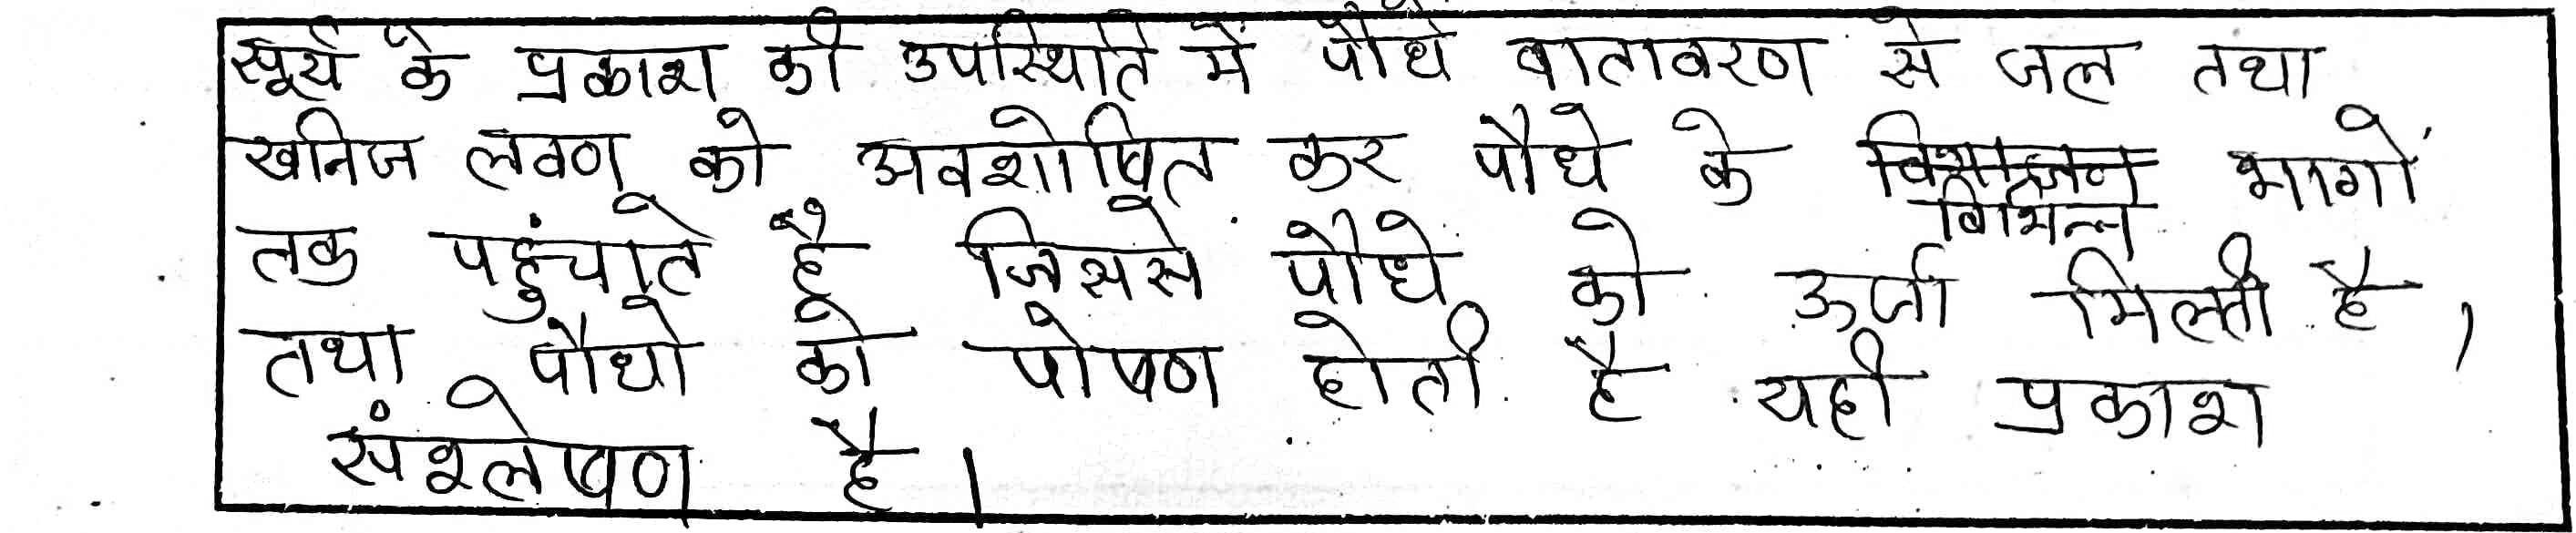 सूर्य के प्रकाश की उपस्थिति में पौधे वातावरण से जल तथा
खनिज लवण को अवशोषित कर पौधे के विभिन्न भागों
तक पहुंचाते है जिससे पौधे को ऊर्जा मिलती है,
तथा पौधो को पोषण होती है यही प्रकाश
संश्लेषण है।